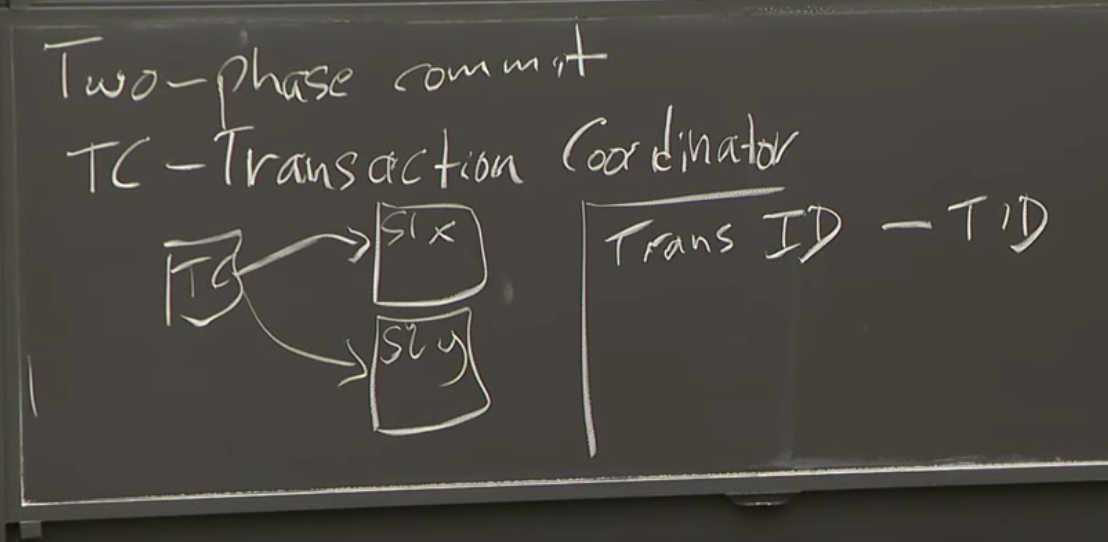 Two-phase commit
TC-Transaction Coordinator
TC
S1 x
S2 y
Trans ID - TID